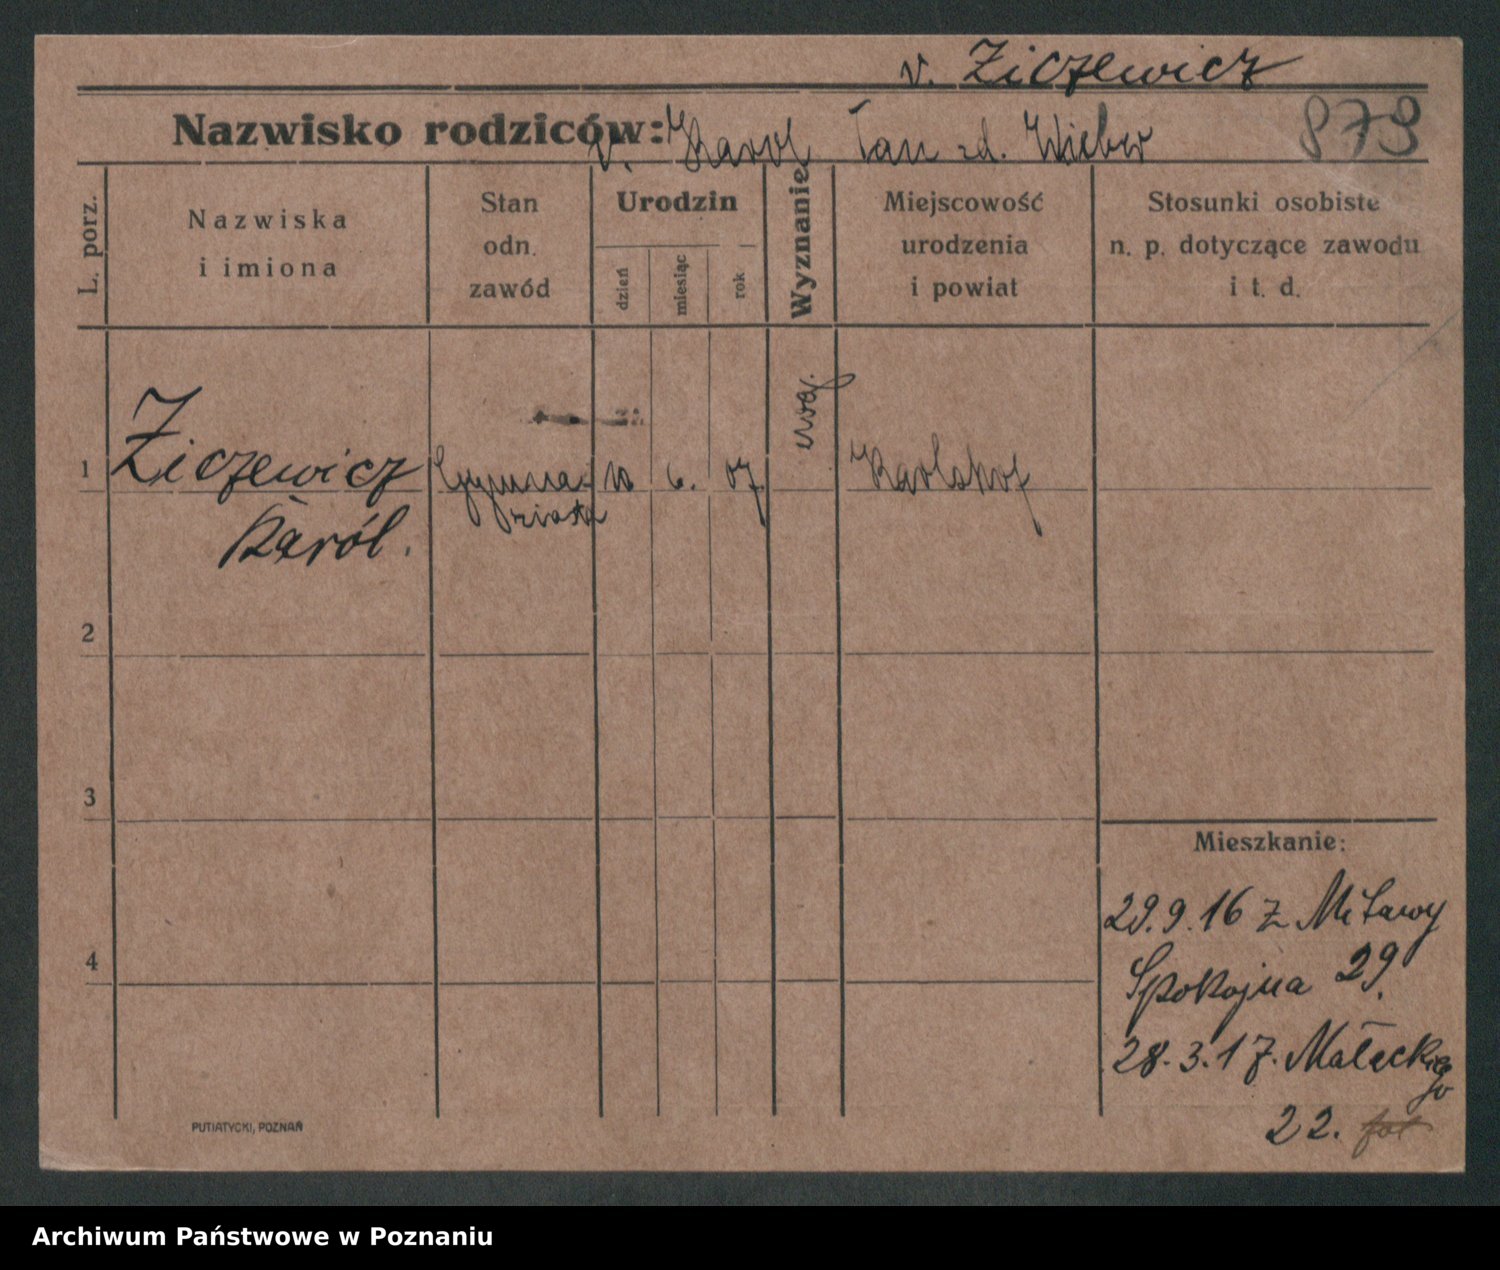 v. Ziczewicz
Nazwisko rodziców: v. Karol Tan zd. Wieber
879
L. porz.
Nazwiska
i imiona
Stan
odn.
zawód
Urodzin
dzień
miesiąc
rok
Wyznanie
Miejscowość
urodzenia
i powiat
Stosunki osobiste
n. p. dotyczące zawodu
i t. d.
1
Ziczewicz
Karól.
Gymna-
ziasta
10 6. 07.
Karlshof
2
3
4
Mieszkanie:
29.9.16 z Mitawy
Spokojna 29.
28.3.17. Małeckie
go
22.
PUTIATYCKI, POZNAŃ
Archiwum Państwowe w Poznaniu